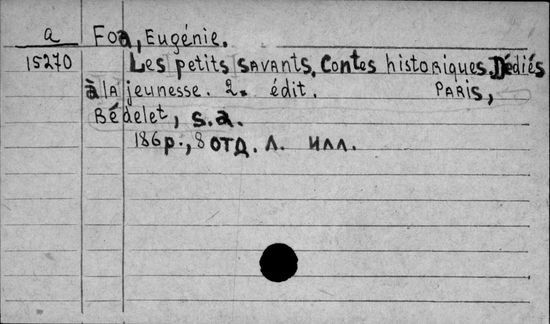 a Foa, Eugénie.
15270 Les petits savants. Contes historiques. Dédiés
à la jeunesse. 2. édit. Paris,
Bédelet, s.a.
186 p., 8 отд. л. илл.